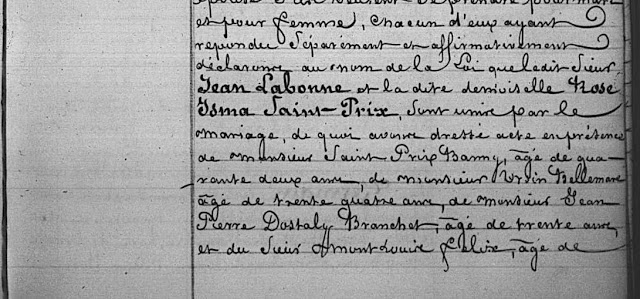 et pour femme, chacun d'eux ayant
repondu séparément et affirmativement
déclarons au nom de la Loi que ledit Sieur
Jean Labonne et la dite demoiselle Rose
Isma Saint-Prix, sont unis par le
mariage, de quoi avons dressé acte en présence
de monsieur Saint Prix Banny, âgé de qua-
rante deux ans, de monsieur Ursin Bellemare
âgé de trente quatre ans, de monsieur Jean
Pierre Dostaly Branchet, âgé de trente ans,
et du Sieur Mont Louis Félix, âgé de